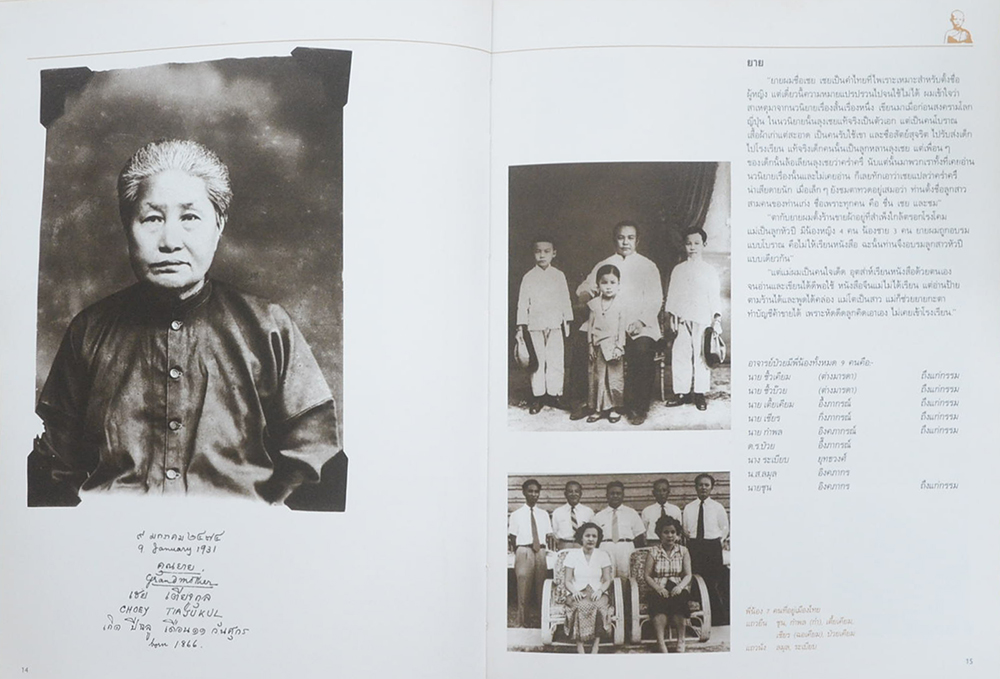 ๙ มกราคม ๒๔๗๔
9 January 1931
คุณยาย
Grandmother
เชย เตียวกุล
CHOEY TIASUKUL
เกิด ปีขาล เดือน ๑๑ วันศุกร์
born 1866.
14
ยาย
"ยายผมชื่อเชย เชยเป็นคำไทยที่ไพเราะเหมาะสำหรับตั้งชื่อ
ผู้หญิง แต่เดี๋ยวนี้ความหมายแปรปรวนไปจนใช้ไม่ได้ ผมเข้าใจว่า
สาเหตุมาจากนวนิยายเรื่องสั้นเรื่องหนึ่ง เขียนมาเมื่อก่อนสงครามโลก
ญี่ปุ่น ในนวนิยายนั้นลุงเชยแท้จริงเป็นตัวเอก แต่เป็นคนโบราณ
เสื้อผ้าเก่าแต่สะอาด เป็นคนรับใช้เขา และซื่อสัตย์สุจริต ไปรับส่งเด็ก
ไปโรงเรียน แท้จริงเด็กคนนั้นเป็นลูกหลานลุงเชย แต่เพื่อนๆ
ของเด็กนั้นล้อเลียนลุงเชยว่าคร่ำครึ นับแต่นั้นมาพวกเราทั้งที่เคยอ่าน
นวนิยายเรื่องนั้นและไม่เคยอ่าน ก็เลยทึกเอาว่าเชยแปลว่าคร่ำครึ
น่าเสียดายนัก เมื่อเล็กๆ ยังชมตาทวดอยู่เสมอว่า ท่านตั้งชื่อลูกสาว
สามคนของท่านเก่ง ชื่อเพราะทุกคน คือ ชื่น เชย และชม"
"ตากับยายผมตั้งร้านขายผ้าอยู่ที่สำเพ็งใกล้ตรอกโรงโคม
แม่เป็นลูกหัวปี มีน้องหญิง 4 คน น้องชาย 3 คน ยายผมถูกอบรม
แบบโบราณ คือไม่ให้เรียนหนังสือ ฉะนั้นท่านจึงอบรมลูกสาวหัวปี
แบบเดียวกัน"
"แต่แม่ผมเป็นคนใจเด็ด อุตส่าห์เรียนหนังสือด้วยตนเอง
จนอ่านและเขียนได้ดีพอใช้ หนังสือจีนแม่ไม่ได้เรียน แต่อ่านป้าย
ตามร้านได้และพูดได้คล่อง แม่โตเป็นสาว แม่ก็ช่วยยายกะตา
ทำบัญชีค้าขายได้ เพราะหัดดีดลูกคิดเอาเอง ไม่เคยเข้าโรงเรียน"
อาจารย์ป๋วยมีพี่น้องทั้งหมด 9 คนคือ:-
นาย ชิ้วเคียม (ต่างมารดา) ถึงแก่กรรม
นาย ชิ้วป๊วย (ต่างมารดา) ถึงแก่กรรม
นาย เต็งเคียม อึ๊งภากรณ์ ถึงแก่กรรม
นาย เธียร กิงภากรณ์ ถึงแก่กรรม
นาย กำพล อิงคภากรณ์ ถึงแก่กรรม
ด.ร.ป๋วย อึ๊งภากรณ์
นาง ระเบียบ ยุทธวงศ์
น.ส.ลมุล อิงคภากร
นายชุน อิงคภากร ถึงแก่กรรม
พี่น้อง 7 คนที่อยู่เมืองไทย
แถวยืน ชุน, กำพล (กำ), เต็งเคียม,
เธียร (ฉลเคียม), ป๋วยเคียม
แถวนั่ง ลมุล, ระเบียบ
15